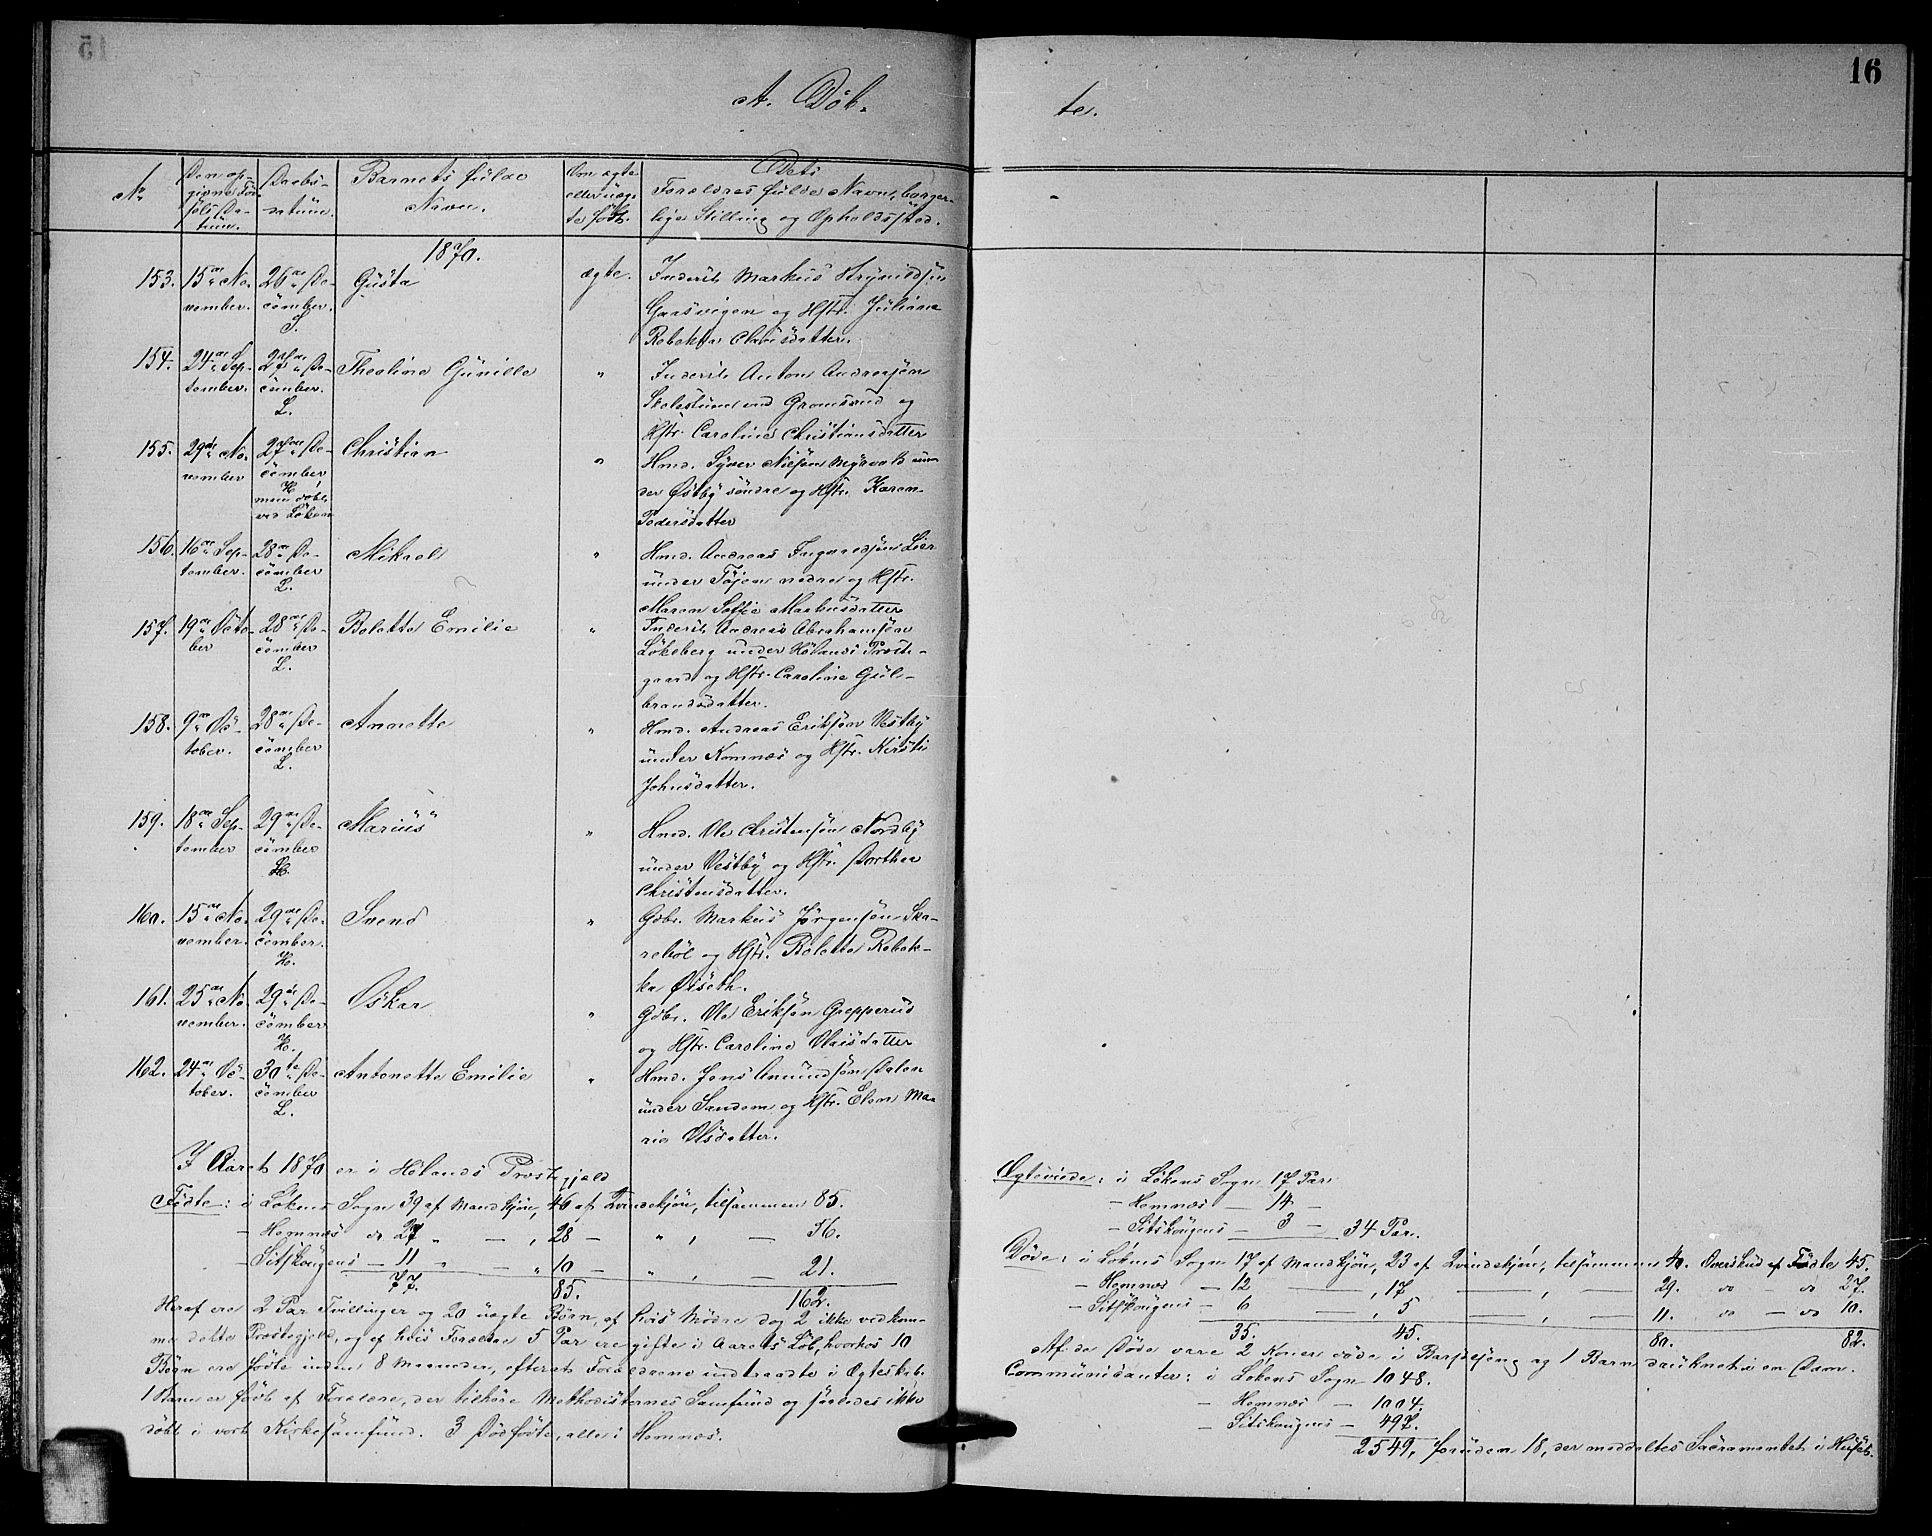 16
A. Döb-
te.
No
Den op-
givne Föd-
sels Da-
tum.
Daabs-
datum.
Barnets fulde
Navn.
Om ægte
eller uæg-
te født.
Dets
Forældres fulde Navn, borger-
lige Stilling og Opholdssted.
1870.
153. 15de No-
vember. 26de De-
cember.
S. Gusta ægte. Inderst Markus
Gaasvigen og Hstr. Juliane
Rebekka Clausdatter.
154. 24de Sep-
tember. 27de De-
cember.
L. Theoline Gunille " Inderst Anton Andreasøn
Skolestuen ved Gromsrud og
Hstr. Caroline Christiansdatter
155. 29de No-
vember 27de De-
cember
H,
men døbt
ved Løken Christian " Hmd. Syver Nilsøn Myrvold un-
der Østby søndre og Hstr. Karen
Pedersdatter
156. 16de Sep-
tember. 28de De-
cember
L. Mikael " Hmd. Andreas Ingvaldsøn Lier
under Töjen nedre og Hstr.
Maren Soffie Markusdatter
157. 19de Octo-
ber 28de De-
cember
L. Bolette Emilie " Inderst Andreas Abrahamsøn
Løkeberg under Hölands Præste-
gaard og Hstr. Caroline Gul-
brandsdatter.
158. 9de Oc-
tober. 28de De-
cember
L. Annette " Hmd. Andreas Eriksøn Vestby
under Komnæs og Hstr. Kirsti
Johnsdatter.
159. 18de Sep-
tember 29de De-
cember
H. Marius " Hmd. Ole Christensøn Nordby
under Vestby og Hstr. Dorthea
Christensdatter.
160. 15de No-
vember. 29de De-
cember.
H. Svend " Gbr. Markus Jørgensøn Ska-
rebøl og Hstr. Bolette Rebek-
ka Ørseth.
161. 25de No-
vember. 29de De-
cember
H. Oskar " Gbr. Ole Eriksøn Grepperud
og Hstr. Caroline Olausdatter
162. 24de Oc-
tober. 30te De-
cember
L. Antonette Emilie " Hmd. Jens Amundsøn Dalen
under Sandem og Hstr. Elen Ma-
rie Olsdatter.
I Aaret 1870 er i Hölands Præstegjeld
Födte: i Løkens Sogn 39 af Mandkjön, 46 af Qvindekjön, tilsammen 85.
- Hemnæs do 27 " — , 28 — " , — 56.
- Sitskougens — 11 " — " 10 — " , — 21.
77. 85. 162.
Heraf ere 2 Par Tvillinger og 20 uægte Börn, af hvis Mødre dog 2 ikke vedkom-
me dette Præstegjeld, og af hvis Forældre 5 Par ere gifte i Aarets Løb, hvorhos 10
Börn ere fødte inden 8 Maaneder, efterat Forældrene indtraadte i Ægteskab.
1 Barn er født af Forældre, der tilhöre Methodisternes Samfund og saaledes ikke
döbt i vort Kirkesamfund. 3 Dødfødte, alle i Hemnæs.
Ægteviede: i Løkens Sogn 17 Par
- Hemnæs — 14 —
- Sitskougens — 3 — 34 Par.
Døde: i Løkens Sogn 17 af Mandkjön, 23 af Qvindekjön, tilsammen 40. Overskud af Födte 45.
- Hemnæs — 12 — , 17 — , — 29. do — do 27.
- Sitskougens — 6 — , 5 — , — 11. do — do 10.
35. 45. 80. 82.
Af de Døde vare 2 Koner døde i Barselseng og 1 Barn druknet i en Dam.
Communicanter: i Løkens Sogn 1048.
- Hemnæs — 1004.
- Sitskougens — 497.
2549, foruden 18, der meddeltes Sacramentet i Huset.